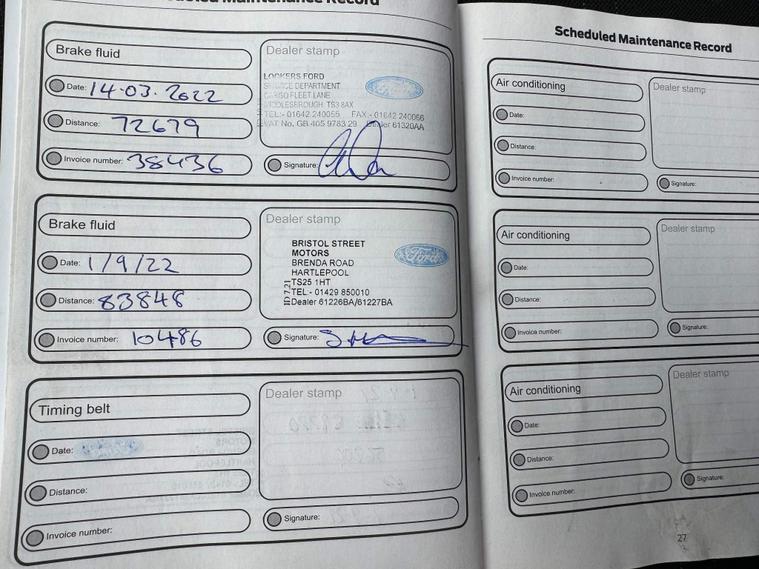 Scheduled Maintenance Record
Brake fluid
Date: 14-03-2022
Distance: 72679
Invoice number: 38436
Dealer stamp
LOOKERS FORD
SERVICE DEPARTMENT
CARGO FLEET LANE
MIDDLESBROUGH TS3 8AX
TEL:- 01642 240055 FAX:- 01642 240066
VAT No. GB 405 9783 29 Dealer 61320AA
Ford
Signature:
Brake fluid
Date: 1/9/22
Distance: 83848
Invoice number: 10486
Dealer stamp
BRISTOL STREET
MOTORS
BRENDA ROAD
HARTLEPOOL
TS25 1HT
TEL:- 01429 850010
Dealer 61226BA/61227BA
Ford
Signature:
Timing belt
Date:
Distance:
Invoice number:
Dealer stamp
Signature:
Scheduled Maintenance Record
Air conditioning
Date:
Distance:
Invoice number:
Dealer stamp
Signature:
Air conditioning
Date:
Distance:
Invoice number:
Dealer stamp
Signature:
Air conditioning
Date:
Distance:
Invoice number:
Dealer stamp
Signature:
27